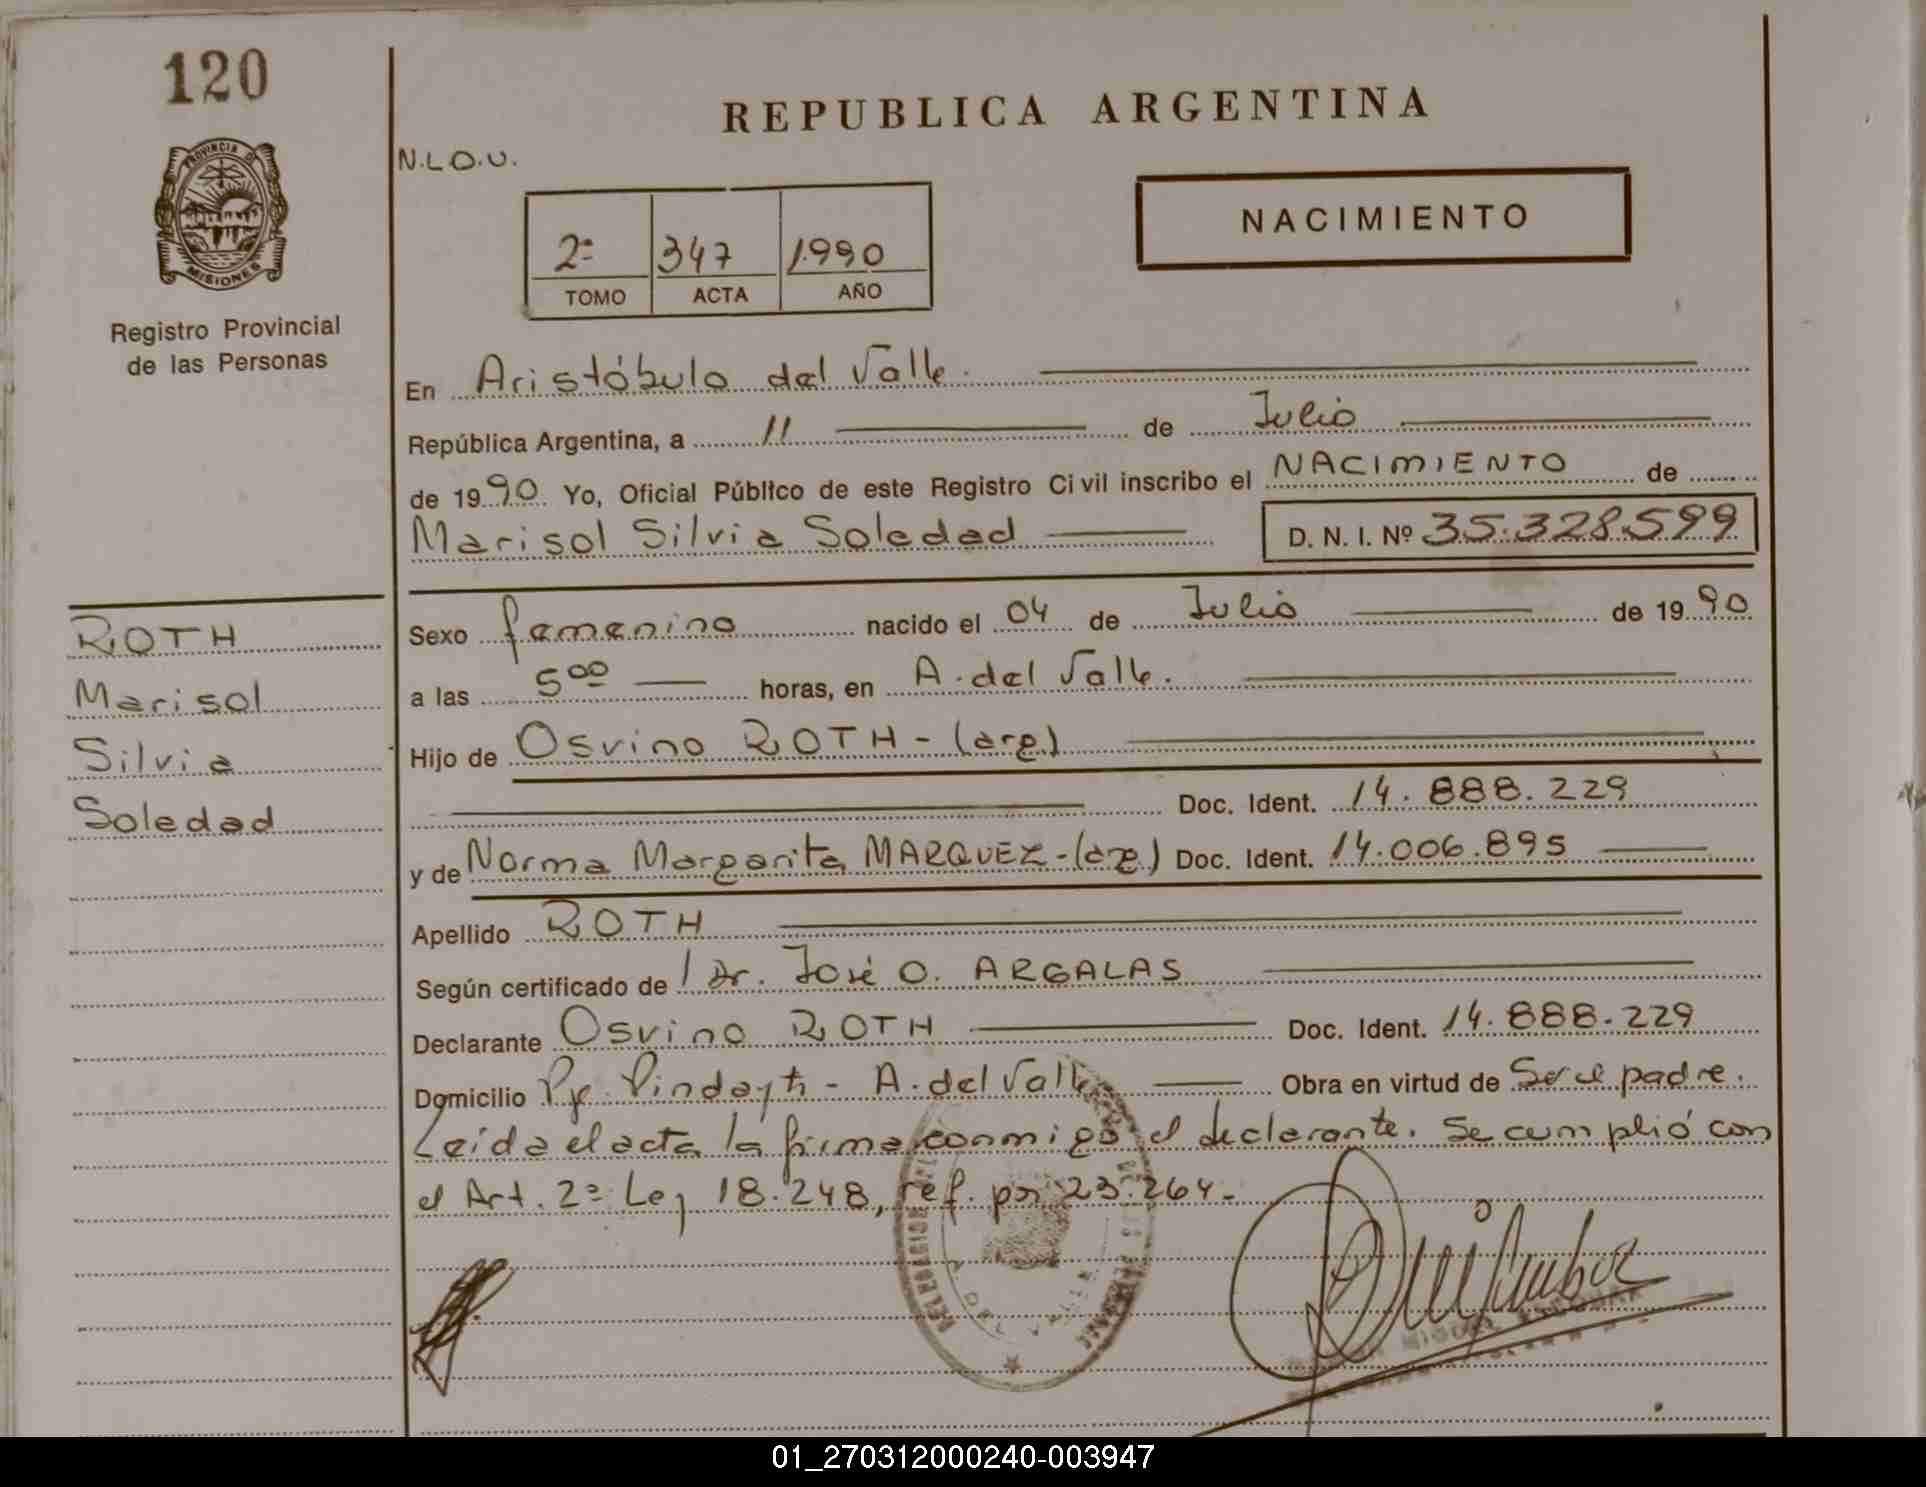 120
PROVINCIA DE
MISIONES
Registro Provincial
de las Personas
ROTH
Marisol
Silvia
Soledad
REPUBLICA ARGENTINA
N.L.O.U.
2º 347 1990
TOMO ACTA AÑO
NACIMIENTO
En Aristóbulo del Valle.
República Argentina, a 11 de Julio
de 1990 Yo, Oficial Público de este Registro Civil inscribo el NACIMIENTO de
Marisol Silvia Soledad D. N. I. Nº 35.328.599
Sexo femenino nacido el 04 de Julio de 1990
a las 5ºº horas, en A. del Valle.
Hijo de Osvino ROTH - (arg)
Doc. Ident. 14.888.229
y de Norma Margarita MARQUEZ - (arg) Doc. Ident. 14.006.895
Apellido ROTH
Según certificado de Dr. José O. ARGALAS
Declarante Osvino ROTH Doc. Ident. 14.888.229
Domicilio Pje. Pindayti - A. del Valle Obra en virtud de Ser el padre.
Leída el acta la firma conmigo el declarante. Se cumplió con
el Art. 2º Ley 18.248, ref. por 23.264.-
DEL VALLE
MIGUEL
01_270312000240-003947